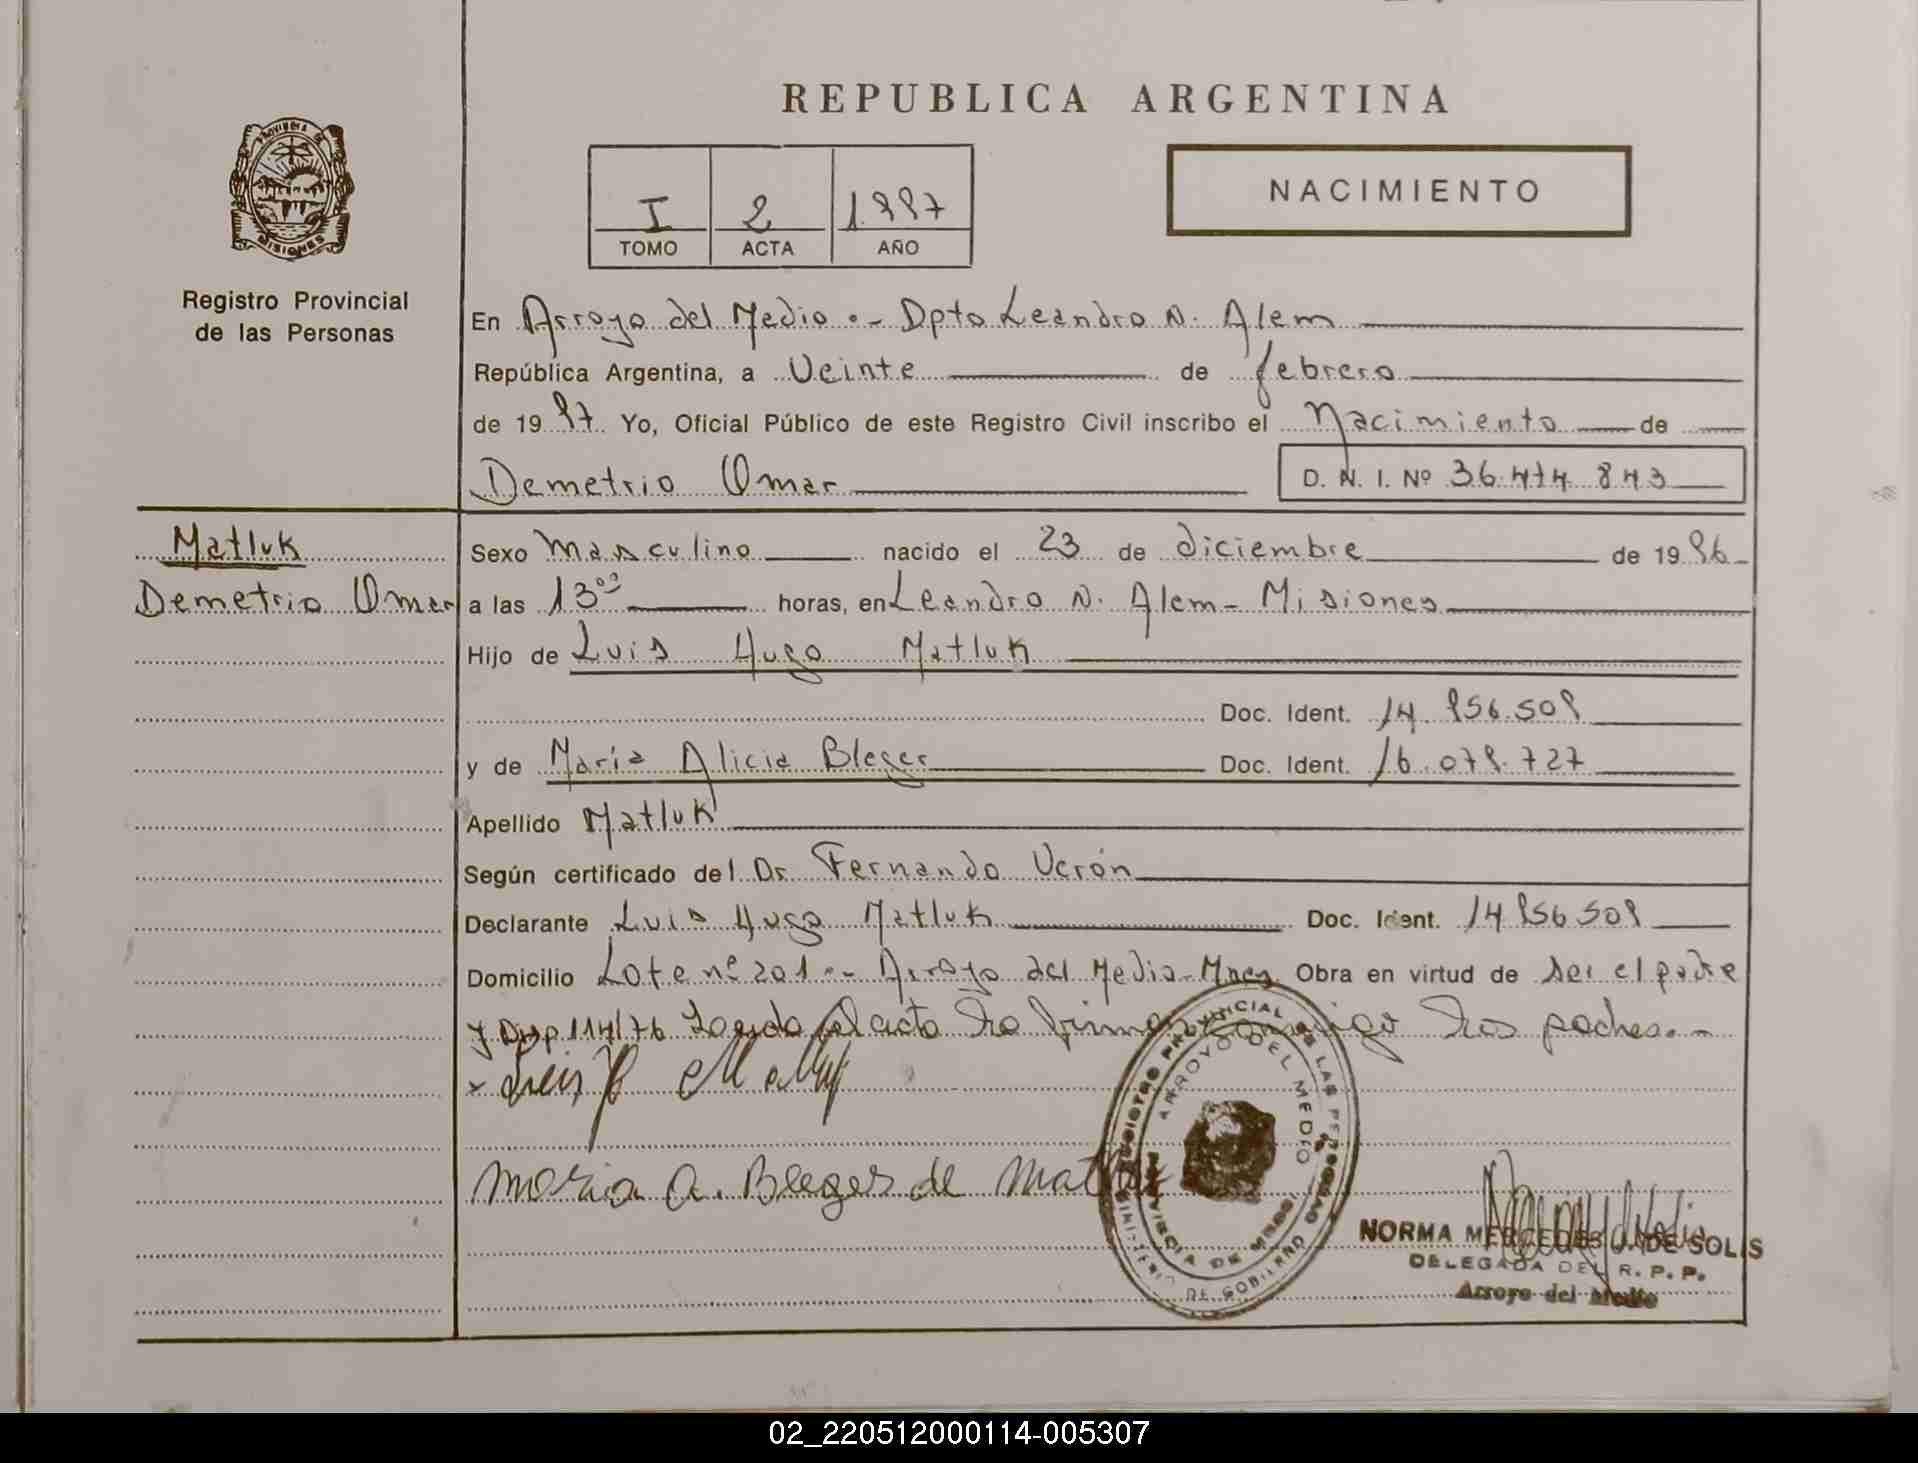 REPUBLICA ARGENTINA
PROVINCIA DE
MISIONES
Registro Provincial
de las Personas
I 2 1.987
TOMO ACTA AÑO
NACIMIENTO
En Arroyo del Medio.- Dpto Leandro N. Alem
República Argentina, a Veinte de febrero
de 1987 Yo, Oficial Público de este Registro Civil inscribo el Nacimiento de
Demetrio Omar D. N. I. Nº 36.474.843
Matluk
Demetrio Omar
Sexo Masculino nacido el 23 de diciembre de 1986
a las 13⁰⁰ horas, en Leandro N. Alem - Misiones
Hijo de Luis Hugo Matluk
Doc. Ident. 14.856.508
y de María Alicia Bleger Doc. Ident. 16.078.727
Apellido Matluk
Según certificado del Dr. Fernando Verón
Declarante Luis Hugo Matluk Doc. Ident. 14.856.508
Domicilio Lote nº 201.- Arroyo del Medio - Mnes Obra en virtud de ser el padre
y Disp 114/76 Leída el acta la firman conmigo los padres.-
x Luis H Matluk
Maria A. Bleger de Matluk
REGISTRO PROVINCIAL DE LAS PERSONAS
ARROYO DEL MEDIO
PROVINCIA DE MNES.
MINISTERIO DE GOBIERNO
NORMA MERCEDES DE SOLIS
DELEGADA DEL R. P. P.
Arroyo del Medio
02_220512000114-005307